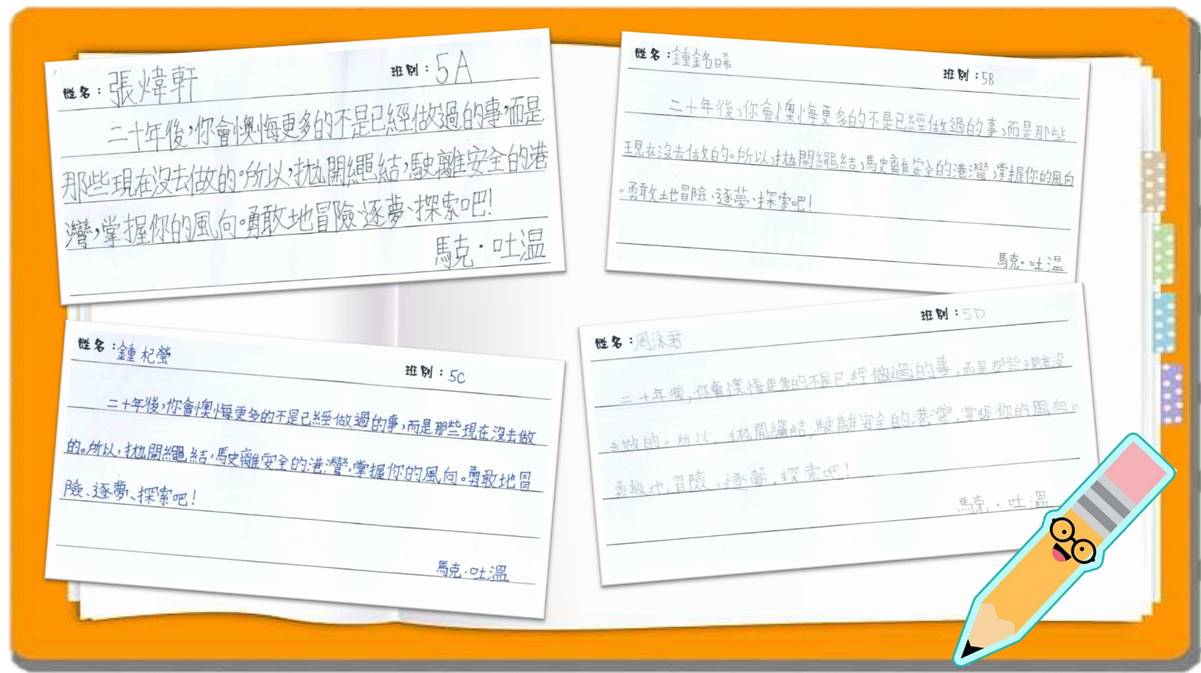 姓名：張煒軒 班別：5A
二十年後，你會懊悔更多的不是已經做過的事，而是
那些現在沒去做的。所以，拋開繩結，駛離安全的港
灣，掌握你的風向。勇敢地冒險、逐夢、探索吧！
馬克．吐溫
姓名：鍾銘晞 班別：5B
二十年後，你會懊悔更多的不是已經做過的事，而是那些
現在沒去做的。所以，拋開繩結，駛離安全的港灣，掌握你的風向
。勇敢地冒險、逐夢、探索吧！
馬克．吐溫
姓名：鍾杞瑩 班別：5C
二十年後，你會懊悔更多的不是已經做過的事，而是那些現在沒去做
的。所以，拋開繩結，駛離安全的港灣，掌握你的風向。勇敢地冒
險、逐夢、探索吧！
馬克．吐溫
姓名：周泳君 班別：5D
二十年後，你會懊悔更多的不是已經做過的事，而是那些現在沒
去做的。所以，拋開繩結，駛離安全的港灣，掌握你的風向。
勇敢地，冒險、逐夢、探索吧！
馬克．吐溫